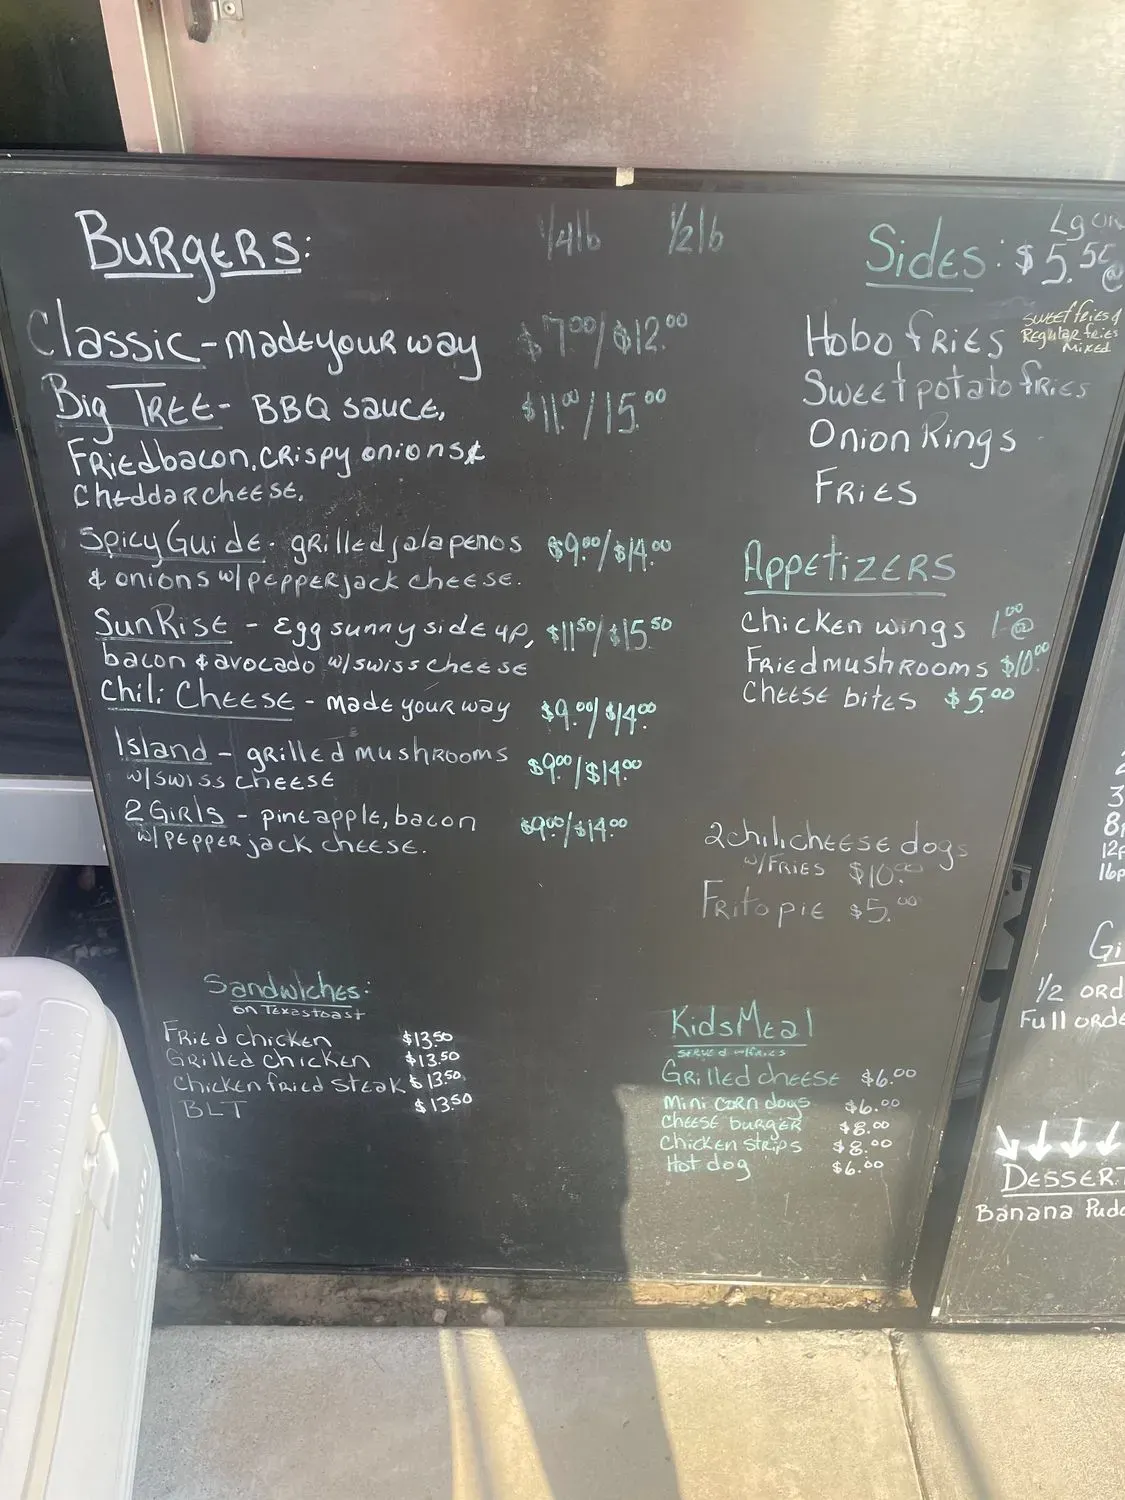 BURGERS: 1/4lb 1/2lb
Classic - made your way $7.00/$12.00
Big Tree - BBQ sauce, $11.00/15.00
Fried bacon, crispy onions &
cheddar cheese.
Spicy Guide - grilled jalapenos $9.00/$14.00
& onions w/pepper jack cheese.
SunRise - Egg sunny side up, $11.50/$15.50
bacon & avocado w/swiss cheese
Chili Cheese - made your way $9.00/$14.00
Island - grilled mushrooms $9.00/$14.00
w/swiss cheese
2 Girls - pineapple, bacon $9.00/$14.00
w/pepper jack cheese.
Sandwiches:
on Texas toast
Fried chicken $13.50
Grilled chicken $13.50
Chicken fried steak $13.50
BLT $13.50
Lg OR
Sides: $5.50 @
Hobo fries
sweet fries &
Regular fries
Mixed
Sweet potato fries
Onion Rings
Fries
Appetizers
chicken wings 1.00 @
Fried mushrooms $10.00
Cheese bites $5.00
2 chili cheese dogs
w/FRIES $10.00
Frito pie $5.00
Kids Meal
served w/fries
Grilled cheese $6.00
Mini corn dogs $6.00
Cheese burger $8.00
chicken strips $8.00
Hot dog $6.00
1/2 ord
Full orde
DESSERT
Banana Pudd